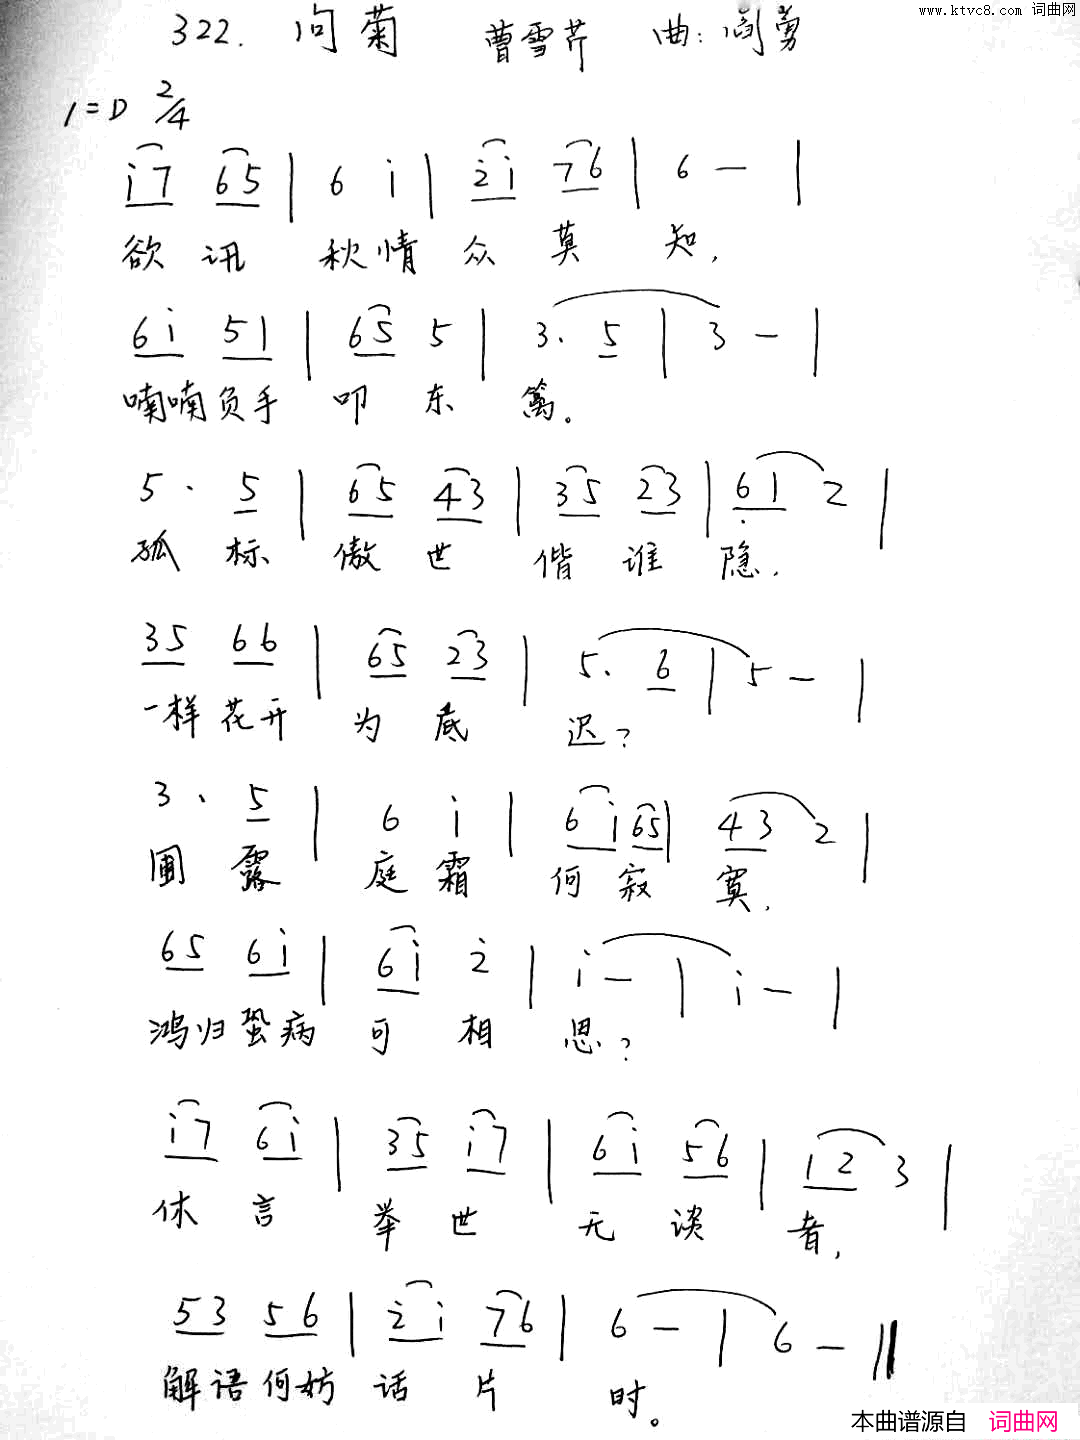 www.ktvc8.com 词曲网
322. 问菊 曹雪芹 曲:阎勇
1=D 2/4
i7 65 | 6 i | 2i 76 | 6 — |
欲讯秋情众莫知,
6i 51 | 65 5 | 3. 5 | 3 — |
喃喃负手叩东篱。
5. 5 | 65 43 | 35 23 | 61 2 |
孤标傲世偕谁隐,
35 66 | 65 23 | 5. 6 | 5 — |
一样花开为底迟?
3. 5 | 6 i | 6i 65 | 43 2 |
圃露庭霜何寂寞,
65 6i | 6i 2 | i — | i — |
鸿归蛩病可相思?
i7 6i | 35 i7 | 6i 56 | 12 3 |
休言举世无谈者,
53 56 | 2i 76 | 6 — | 6 — ‖
解语何妨话片时。
本曲谱源自 词曲网